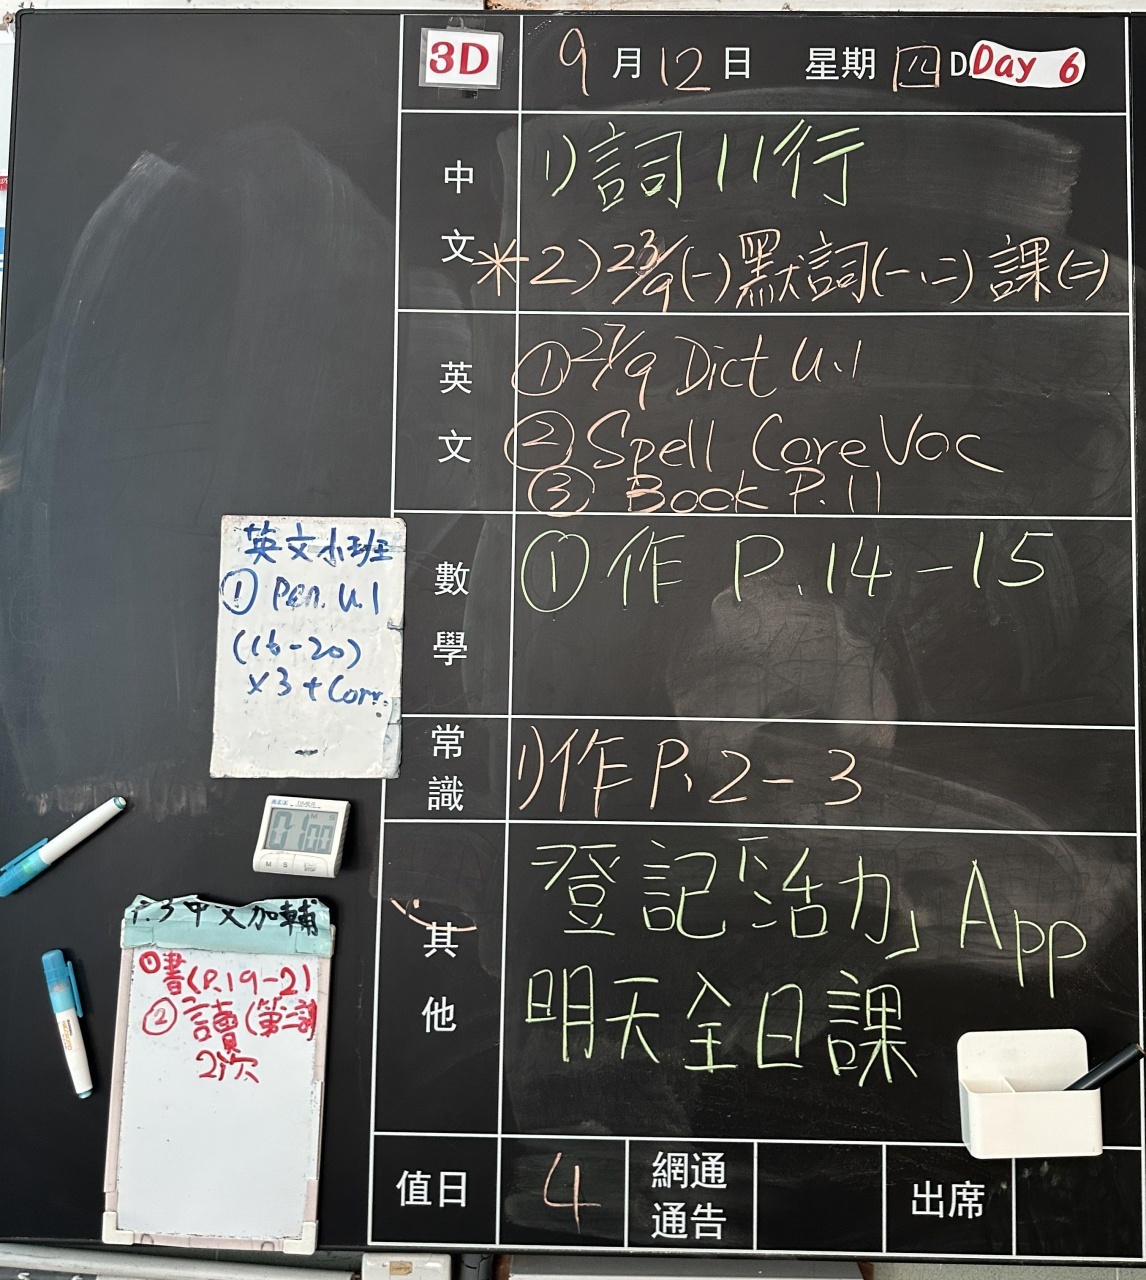 3D 9月12日 星期四 Day 6
中文
1)詞11行
*2) 23/9(一)默詞(一、二)課(二)
英文
①27/9 Dict U.1
②Spell Core Voc
③ Book P.11
數學
①作 P.14-15
常識
1)作P.2-3
其他
登記「活力」App
明天全日課
值日 4 網通通告 出席
英文小班
① Pen. U.1
(16-20)
x3 + Corr.
01 00
P.3中文加輔
①書(P.19-21)
②讀(第二課
2次